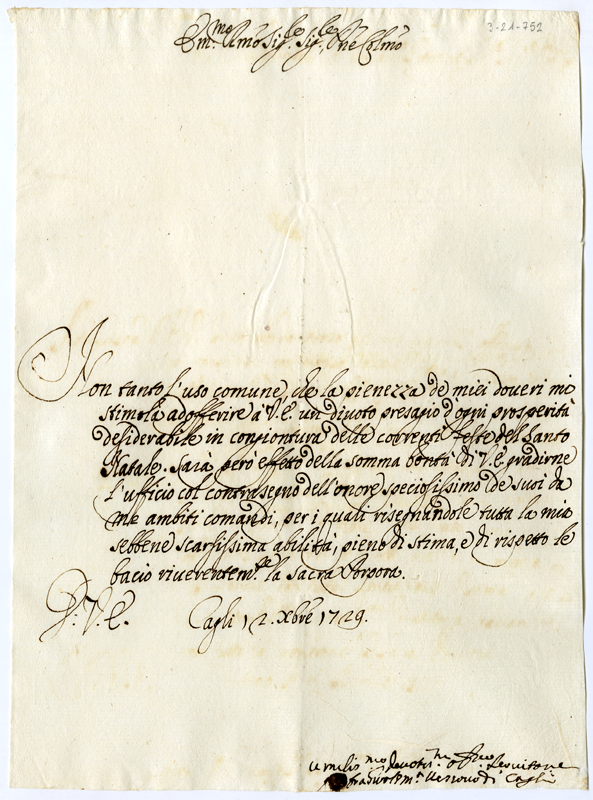 3-21-752
Em.mo Rmo Sig.re Sig.re Pne Colmo
Non tanto l'uso comune, che la pienezza de miei doveri mi
stimola ad offerire à V.E. un divoto presagio d'ogni prosperità
desiderabile in congiontura delle correnti feste del Santo
Natale. Sarà però effetto della somma bontà di V.E. gradirne
l'ufficio col contrasegno dell'onore speciosissimo de suoi da
me ambiti comandi, per i quali risegnandole tutta la mia
sebbene scarsissima abilità, pieno di stima, e di rispetto le
bacio riverentem.te la Sacra Porpora.
D: V. E. Cagli 12. Xbre 1729.
Umilis.mo Devotis.mo Servitore
Vescovo di Cagli